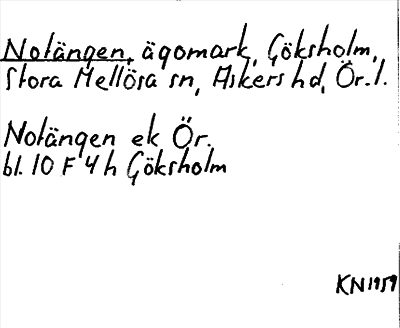 Notängen, ägomark, Göksholm,
Stora Mellösa sn, Askers hd, Ör. l.
Notängen ek Ör.
bl. 10 F 4 h Göksholm
KN 1959